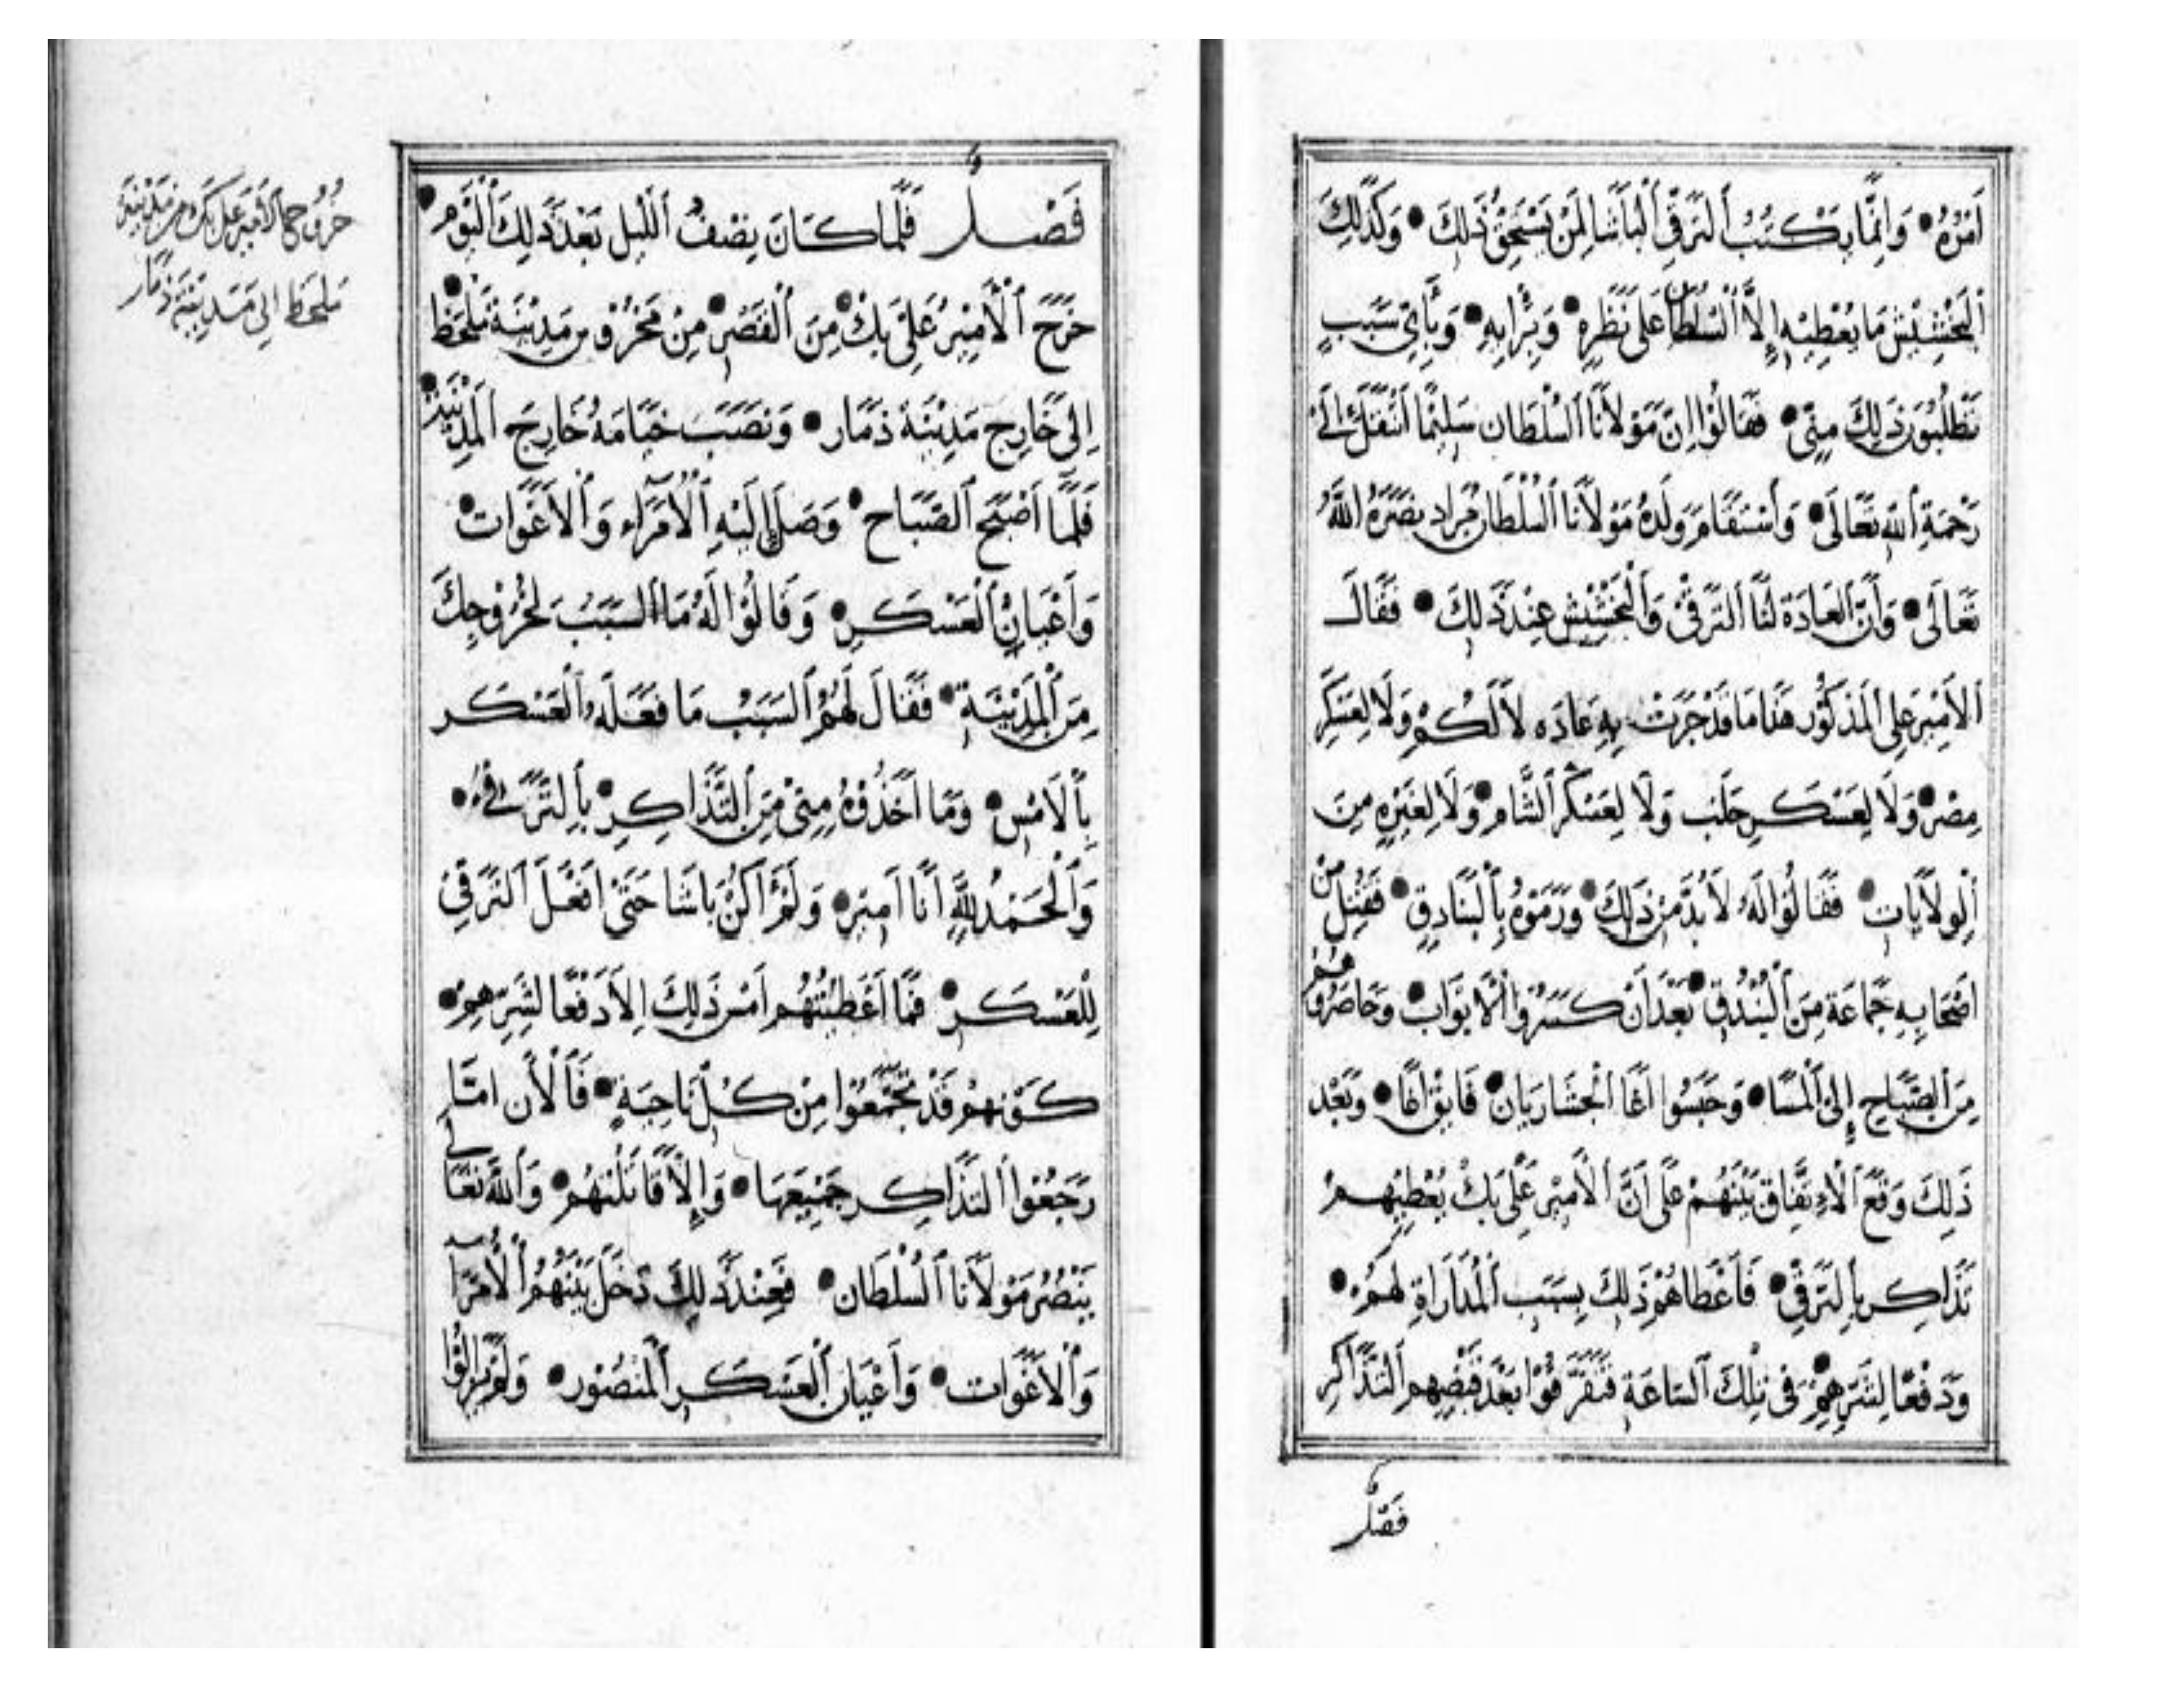 أَمْرُهُ • وَإِنَّمَا يَكْتُبُ ٱلتَّرَقِّي ٱلْبَاشَا لِمَنْ يَسْتَحِقُّ ذَلِكَ • وَكَذَلِكَ
ٱلْبَخْشِيْش مَا يُعْطِيْهِ إِلاَّ ٱلسُّلْطَان عَلَى نَظَرِهِ • وَبِرَأْيِهِ • وَبِأَيِّ سَبَبٍ
تَطْلُبُوْنَ ذَلِكَ مِنِّي • فَقَالُوْا اِنَّ مَوْلاَنَا ٱلسُّلْطَان سَلِيْمًا ٱنْتَقَلَ إِلَى
رَحْمَةِ ٱللهِ تَعَالَى • وَٱسْتَقَامَ وَلَدُهُ مَوْلاَنَا ٱلسُّلْطَان مُرَاد نَصَرَهُ اللَّهُ
تَعَالَى • وَأَنَّ ٱلعَادَة لَنَا ٱلتَّرَقِّي وَٱلْبَخْشِيْش عِنْدَ ذَلِكَ • فَقَالَ
ٱلأَمِيْر عَلِي ٱلمَذْكُوْر هَذَا مَا قَدْ جَرَتْ بِهِ عَادَه لاَ لَكُمْ وَلَا لِعَسْكَرِ
مِصْر • وَلَا لِعَسْكَرِ حَلَب وَلَا لِعَسْكَرِ ٱلشَّام • وَلَا لِغَيْرِهِ مِنَ
ٱلْوِلاَيَاتِ • فَقَالُوْا لَهُ لاَ بُدَّ مِنْ ذَلِكَ • وَرَمَوْهُ بِٱلْبَنَادِقِ • فَقُتِلَ مِنْ
اَصْحَابِهِ جَمَاعَة مِنَ ٱلْبُنْدُق • بَعْدَ اَنْ كَسَرُوْا ٱلْأَبْوَاب • وَحَاصَرُوْهُمْ
مِنَ ٱلصَّبَاحِ إِلَى ٱلْمَسَا • وَحَبَسُوا اَغَا ٱلْجَشَارِيَان • قَايِتْ اَغَا • وَبَعْد
ذَلِكَ وَقَعَ ٱلْأِتِّفَاق بَيْنَهُمْ عَلَى اَنَّ ٱلْأَمِيْر عَلِي بَكْ يُعْطِيْهِمْ
تَذَاكِر بِٱلتَّرَقِّي • فَاَعْطَاهُمْ ذَلِكَ بِسَبَبِ ٱلْمُدَارَاةِ لَهُمْ •
وَدَفْعًا لِشَرِّهِمْ • فِي تِلْكَ ٱلسَّاعَةِ فَتَفَرَّقُوْا بَعْدَ قَبْضِهِم ٱلتَّذَاكِر
فَصْلٌ
فَصْلٌ فَلَمَّا كَانَ نِصْفُ ٱللَّيْلِ بَعْدَ ذَلِكَ ٱلْيَوْم •
خَرَجَ ٱلْأَمِيْرُ عَلِيْ بَكْ • مِنَ ٱلْقَصْرِ • مِنْ مَخْرُوْسِ مَدِيْنَة مَلْحَظ •
اِلَى خَارِجِ مَدِيْنَة ذَمَار • وَنَصَبَ خِيَامَهُ خَارِجَ ٱلْمَدِيْنَةِ •
فَلَمَّا اَصْبَحَ ٱلصَّبَاح • وَصَلَ إِلَيْهِ ٱلْأُمَرَاء وَٱلْأَغَوَات •
وَأَعْيَانُ ٱلْعَسْكَرِ • وَقَالُوْا لَهُ مَا ٱلسَّبَبُ لِخُرُوْجِكَ
مِنَ ٱلْمَدِيْنَةِ • فَقَالَ لَهُمُ ٱلسَّبَبُ مَا فَعَلَهُ ٱلْعَسْكَر
بِٱلْاَمْسِ • وَمَا اَخَذُوْهُ مِنِّي مِنَ ٱلتَّذَاكِرِ • بِٱلتَّرَقِّي •
وَٱلْحَمْدُ لِلَّهِ اَنَا اَمِيْرٌ • وَلَمْ اَكُنْ بَاشَا حَتَّى اَفْعَلَ ٱلتَّرَقِّي
لِلْعَسْكَرِ • فَمَا اَعْطَيْتُهُم اَمْسِ ذَلِكَ اِلاَّ دَفْعًا لِشَرِّهِمْ •
كَوْنَهُمْ قَدْ تَجَمَّعُوْا مِنْ كُلِّ نَاحِيَةٍ • فَٱلْأَن اِمَّا
رَجَّعُوْا ٱلتَّذَاكِر جَمِيْعَهَا • وَإِلاَّ قَاتَلْتُهُم • وَٱللَّهُ تَعَالَى
يَنْصُرُ مَوْلاَنَا ٱلسُّلْطَان • فَعِنْدَ ذَلِكَ دَخَلَ بَيْنَهُمُ ٱلْأُمَرَآ
وَٱلْأَغَوَات • وَأَعْيَان ٱلْعَسْكَرِ ٱلْمَنْصُوْر • وَلَمْ يَزَالُوْا
خُرُوْجُ ٱلاَمِيْر عَلِي بَك مِنْ مَدِيْنَة
مَلْحَظ اِلَى مَدِيْنَة ذَمَار